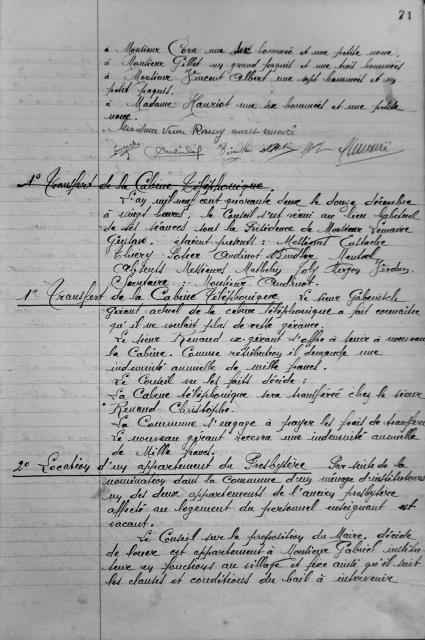 71
à Monsieur Cora une six hommée et une petite noue.
à Monsieur Gillet un grand paquis et une trois hommées
à Monsieur Vincent Albert une sept hommées et un
petit paquis.
à Madame Hauriot une six hommées et une petite
noue.
Madame Veuve Remy ayant renoncé
1° Transfert de la Cabine Téléphonique.
L'an mil neuf cent quarante deux le douze décembre
à vingt heures, le Conseil s'est réuni au lieu habituel
de ses séances sous la Présidence de Monsieur Lemaire
Gustave. étaient présents : Messieurs Eustache
Thiéry Potier Audinot Mentrel
Absents Messieurs Mathelin Joly
Secrétaire : Monsieur Audinot.
1° Transfert de la Cabine Téléphonique Le sieur
Gérant actuel de la cabine téléphonique a fait connaître
qu'il ne voulait plus de cette gérance.
Le sieur Renaud ex-gérant s'offre à tenir à nouveau
la Cabine. Comme rétribution il demande une
indemnité annuelle de mille francs.
Le Conseil vu les faits décide :
La Cabine téléphonique sera transférée chez le sieur
Renaud Christophe.
La Commune s'engage à payer les frais de transfert
Le nouveau gérant recevra une indemnité annuelle
de Mille francs.
2° Location d'un appartement du Presbytère Par suite de la
nomination dans la Commune d'un ménage d'instituteurs
un des deux appartements de l'ancien presbytère
affecté au logement du personnel enseignant est
vacant.
Le Conseil sur la proposition du Maire, décide
de louer cet appartement à Monsieur Gabriel institu-
teur en fonctions au village et fixe ainsi qu'il suit
les clauses et conditions du bail à intervenir